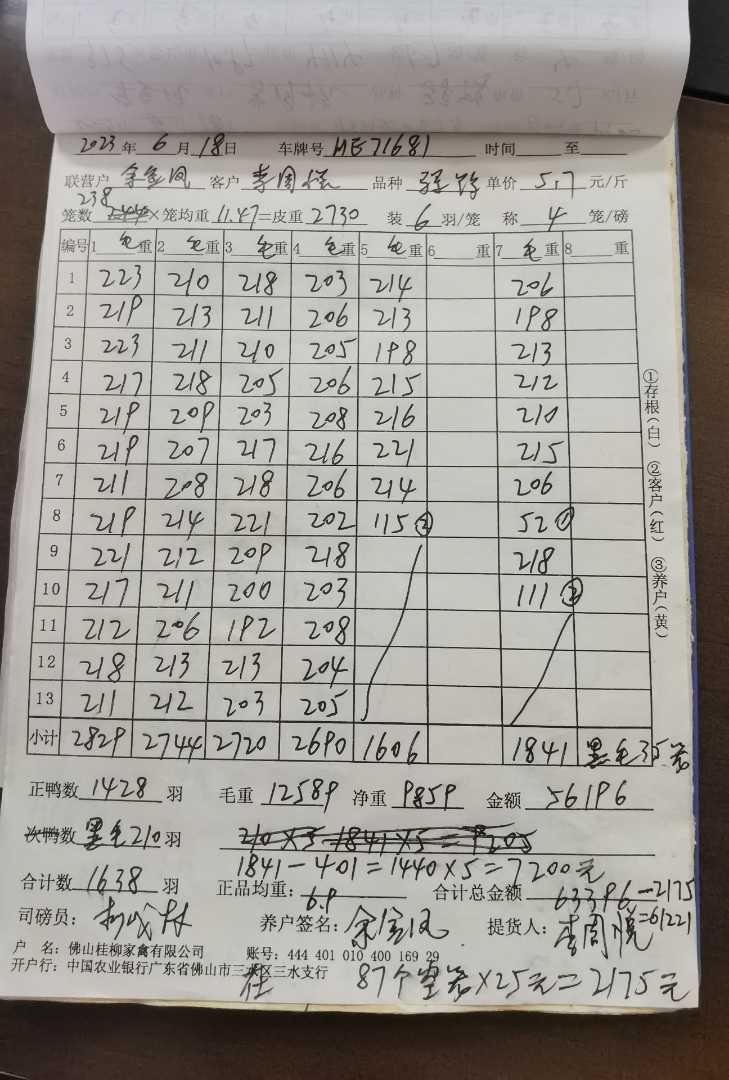 2023年 6月18日 车牌号 HE71681 时间 至
联营户 余金凤 客户 李周悦 品种 单价 5.7 元/斤
238
笼数 244×笼均重 11.47=皮重 2730 装 6 羽/笼 称 4 笼/磅
编号 1 毛重 2 毛重 3 毛重 4 毛重 5 毛重 6 重 7 毛重 8 重
1 223 210 218 203 214 206
2 219 213 211 206 213 198
3 223 211 210 205 198 213
4 217 218 205 206 215 212
5 219 209 203 208 216 210
6 219 207 217 216 221 215
7 211 208 218 206 214 206
8 219 214 221 202 115② 52①
9 221 212 209 218 218
10 217 211 200 203 111②
11 212 206 192 208
12 218 213 213 204
13 211 212 203 205
小计 2829 2744 2720 2690 1606 1841 黑毛35笼
正鸭数 1428 羽 毛重 12589 净重 9859 金额 56196
次鸭数 黑毛210 羽 210×5 1841×5=9205
1841-401=1440×5=7200元
合计数 1638 羽 正品均重: 6.9 合计总金额 63396-2175
=61221
司磅员: 养户签名: 余金凤 提货人: 李周悦
户 名: 佛山桂柳家禽有限公司 账号: 444 401 010 400 169 29
开户行: 中国农业银行广东省佛山市三水区三水支行
87个空笼×25元=2175元
①存根(白) ②客户(红) ③养户(黄)